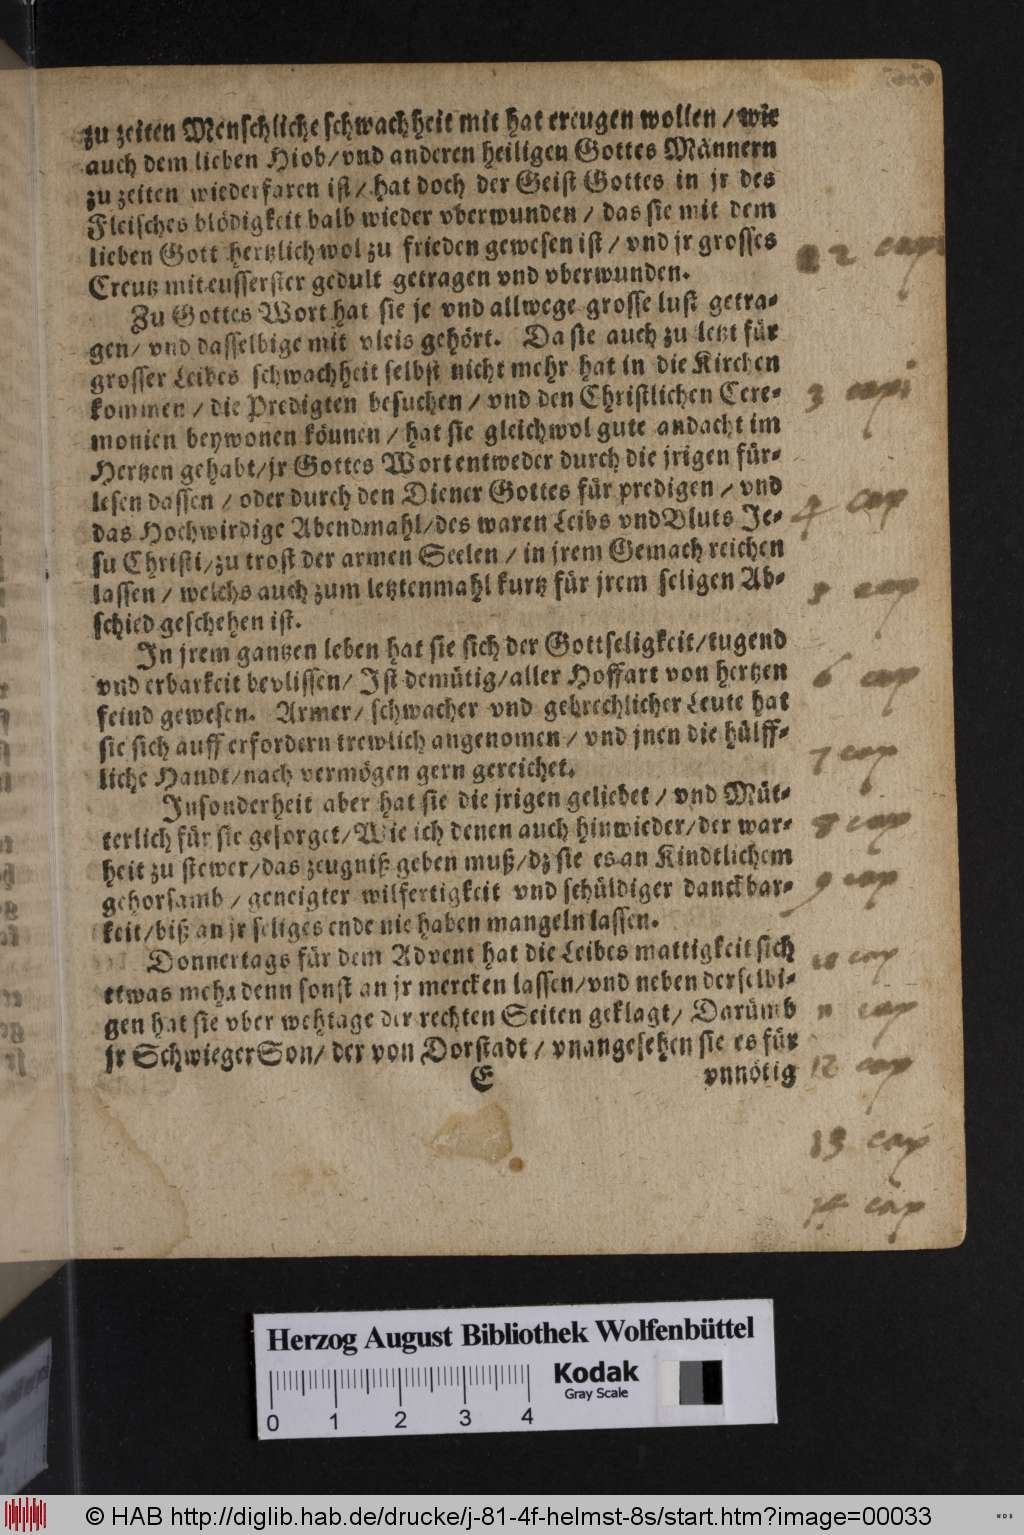 zu zeiten Menschliche schwachheit mit hat ereugen wollen / wie
auch dem lieben Hiob/vnd anderen heiligen Gottes Männern
zu zeiten wiederfaren ist / hat doch der Geist Gottes in jr des
Fleisches blödigkeit balb wieder vberwunden / das sie mit dem
lieben Gott hertzlich wol zu frieden gewesen ist / vnd jr grosses
Creutz mit eusserster gedult getragen vnd vberwunden.
Zu Gottes Wort hat sie je vnd allwege grosse lust getra-
gen/ vnd dasselbige mit vleis gehört. Da sie auch zu letzt für
grosser Leibes schwachheit selbst nicht mehr hat in die Kirchen
kommen / die Predigten besuchen / vnd den Christlichen Cere-
monien beywonen köunen / hat sie gleichwol gute andacht im
Hertzen gehabt/jr Gottes Wort entweder durch die jrigen für-
lesen dassen / oder durch den Diener Gottes für predigen / vnd
das Hochwirdige Abendmahl/des waren Leibs vnd Bluts Je-
su Christi/zu trost der armen Seelen / in jrem Gemach reichen
lassen / welchs auch zum letztenmahl kurtz für jrem seligen Ab-
schied geschehen ist.
In jrem gantzen leben hat sie sich der Gottseligkeit/tugend
vnd erbarkeit bevlissen/ Ist demütig/aller Hoffart von hertzen
feind gewesen. Armer/ schwacher vnd gebrechlicher Leute hat
sie sich auff erfordern trewlich angenomen / vnd jnen die hülff-
liche Handt/nach vermögen gern gereichet.
Insonderheit aber hat sie die jrigen geliebet / vnd Müt-
terlich für sie gesorget/Wie ich denen auch hinwieder/der war-
heit zu stewer/das zeugniß geben muß/dz sie es an Kindtlichem
gehorsamb / geneigter wilfertigkeit vnd schüldiger danckbar-
keit/biß an jr seliges ende nie haben mangeln lassen.
Donnertags für dem Advent hat die Leibes mattigkeit sich
etwas mehr denn sonst an jr mercken lassen/vnd neben derselbi-
gen hat sie vber wehtage der rechten Seiten geklagt/ Darümb
jr Schwieger Son/ der von Dorstadt / vnangesehen sie es für
E vnnötig
2 cap
3 capi
4 cap
cap
6 cap
7 cap
8 cap
9 cap
10 cap
11 cap
12 cap
13 cap
14 cap
Herzog August Bibliothek Wolfenbüttel
Kodak
Gray Scale
0 1 2 3 4
© HAB http://diglib.hab.de/drucke/j-81-4f-helmst-8s/start.htm?image=00033